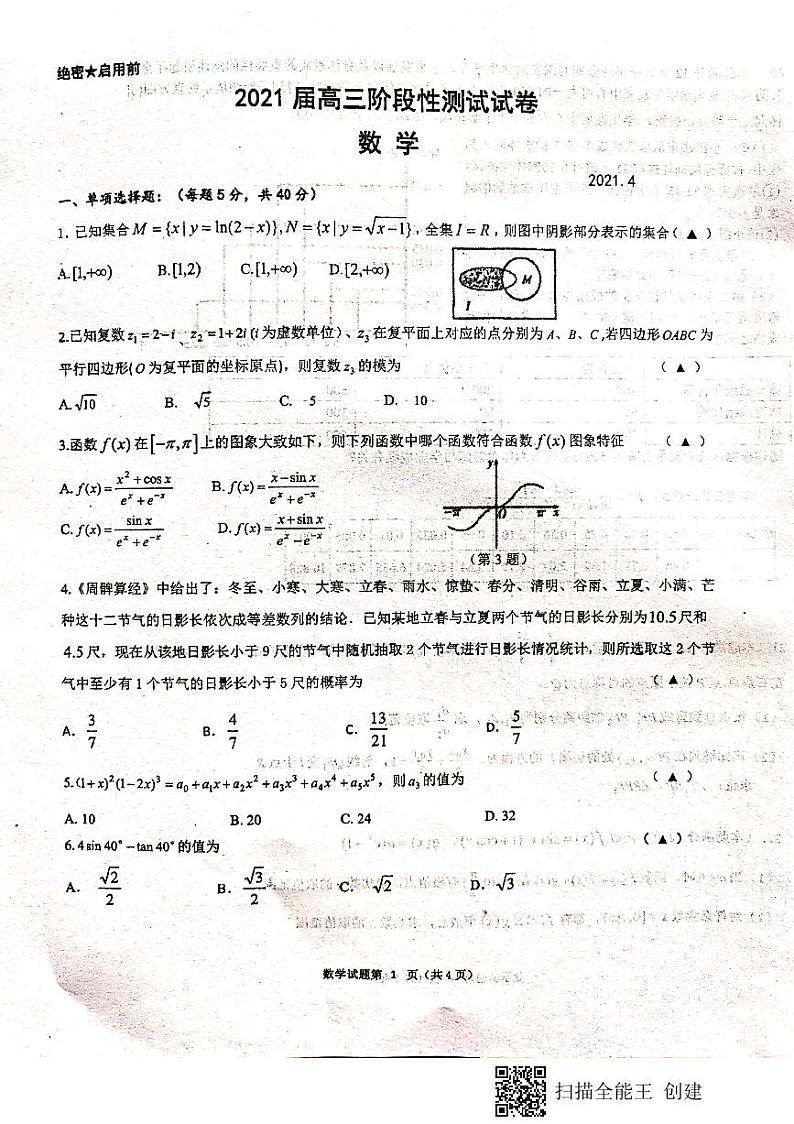 绝密★启用前
2021 届高三阶段性测试试卷
数 学
2021.4
一、单项选择题：（每题5分，共40分）
1. 已知集合 M = {x | y = ln(2−x)}, N = {x | y = √(x−1)}, 全集 I = R，则图中阴影部分表示的集合（ ▲ ）
A.[1,+∞) B.[1,2) C.[1,+∞) D.[2,+∞)
M
I
2.已知复数 z₁ = 2−i 、z₂ = 1+2i (i 为虚数单位)、z₃ 在复平面上对应的点分别为 A、B、C ,若四边形 OABC 为
平行四边形(O 为复平面的坐标原点)，则复数 z₃ 的模为 （ ▲ ）
A. √10 B. √5 C. 5 D. 10
3.函数 f(x) 在 [−π,π] 上的图象大致如下，则下列函数中哪个函数符合函数 f(x) 图象特征 （ ▲ ）
A. f(x) = (x² + cos x)/(eˣ + e⁻ˣ) B. f(x) = (x − sin x)/(eˣ + e⁻ˣ)
C. f(x) = sin x/(eˣ + e⁻ˣ) D. f(x) = (x + sin x)/(eˣ − e⁻ˣ)
y
−π O π x
（第 3 题）
4.《周髀算经》中给出了：冬至、小寒、大寒、立春、雨水、惊蛰、春分、清明、谷雨、立夏、小满、芒
种这十二节气的日影长依次成等差数列的结论．已知某地立春与立夏两个节气的日影长分别为10.5尺和
4.5尺，现在从该地日影长小于 9 尺的节气中随机抽取 2 个节气进行日影长情况统计，则所选取这 2 个节
气中至少有 1 个节气的日影长小于 5 尺的概率为 （ ▲ ）
A. 3/7 B. 4/7 C. 13/21 D. 5/7
5.(1+x)²(1−2x)³ = a₀ + a₁x + a₂x² + a₃x³ + a₄x⁴ + a₅x⁵，则 a₃ 的值为 （ ▲ ）
A. 10 B. 20 C. 24 D. 32
6. 4 sin 40° − tan 40° 的值为 （ ▲ ）
A. √2/2 B. √3/2 C. √2 D. √3
数学试题第 1 页（共 4 页）
扫描全能王 创建